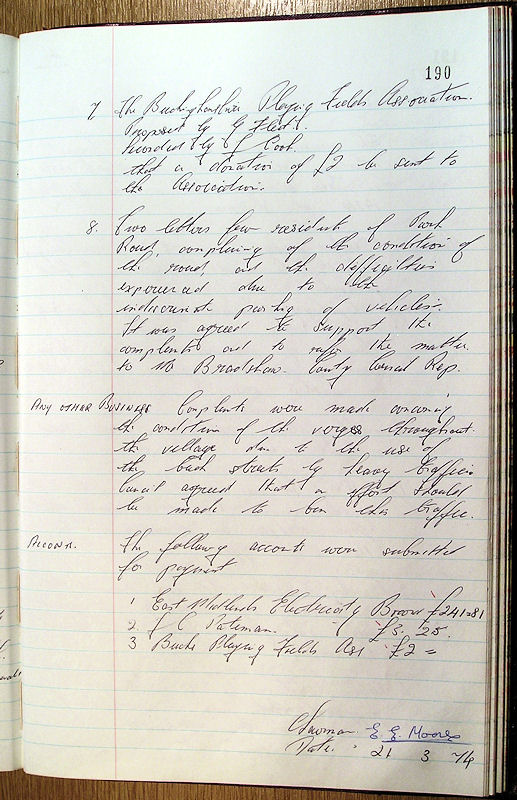 190
7 The Buckinghamshire Playing Fields Association.
Proposed by G
Seconded by J Cook
that a donation of £2 be sent to
the Association.
8. Two letters from resident of Park
Road, complaining of the condition of
the road and the difficulties
experienced due to the
indiscriminate parking of vehicles.
It was agreed to support the
complaints and to refer the matter
to Mr Bradshaw. County Council Rep.
ANY OTHER BUSINESS Complaints were made concerning
the condition of the verges throughout
the village due to the use of
the back streets by heavy traffic.
Council agreed that an effort should
be made to ban this traffic.
ACCOUNTS. The following accounts were submitted
for payment
1 East Midlands Electricity Board £241=81
2. J C Pateman. £3. 25.
3 Bucks Playing Fields Ass £2=
Chairman E. G. Moores
Date. 21 3 74